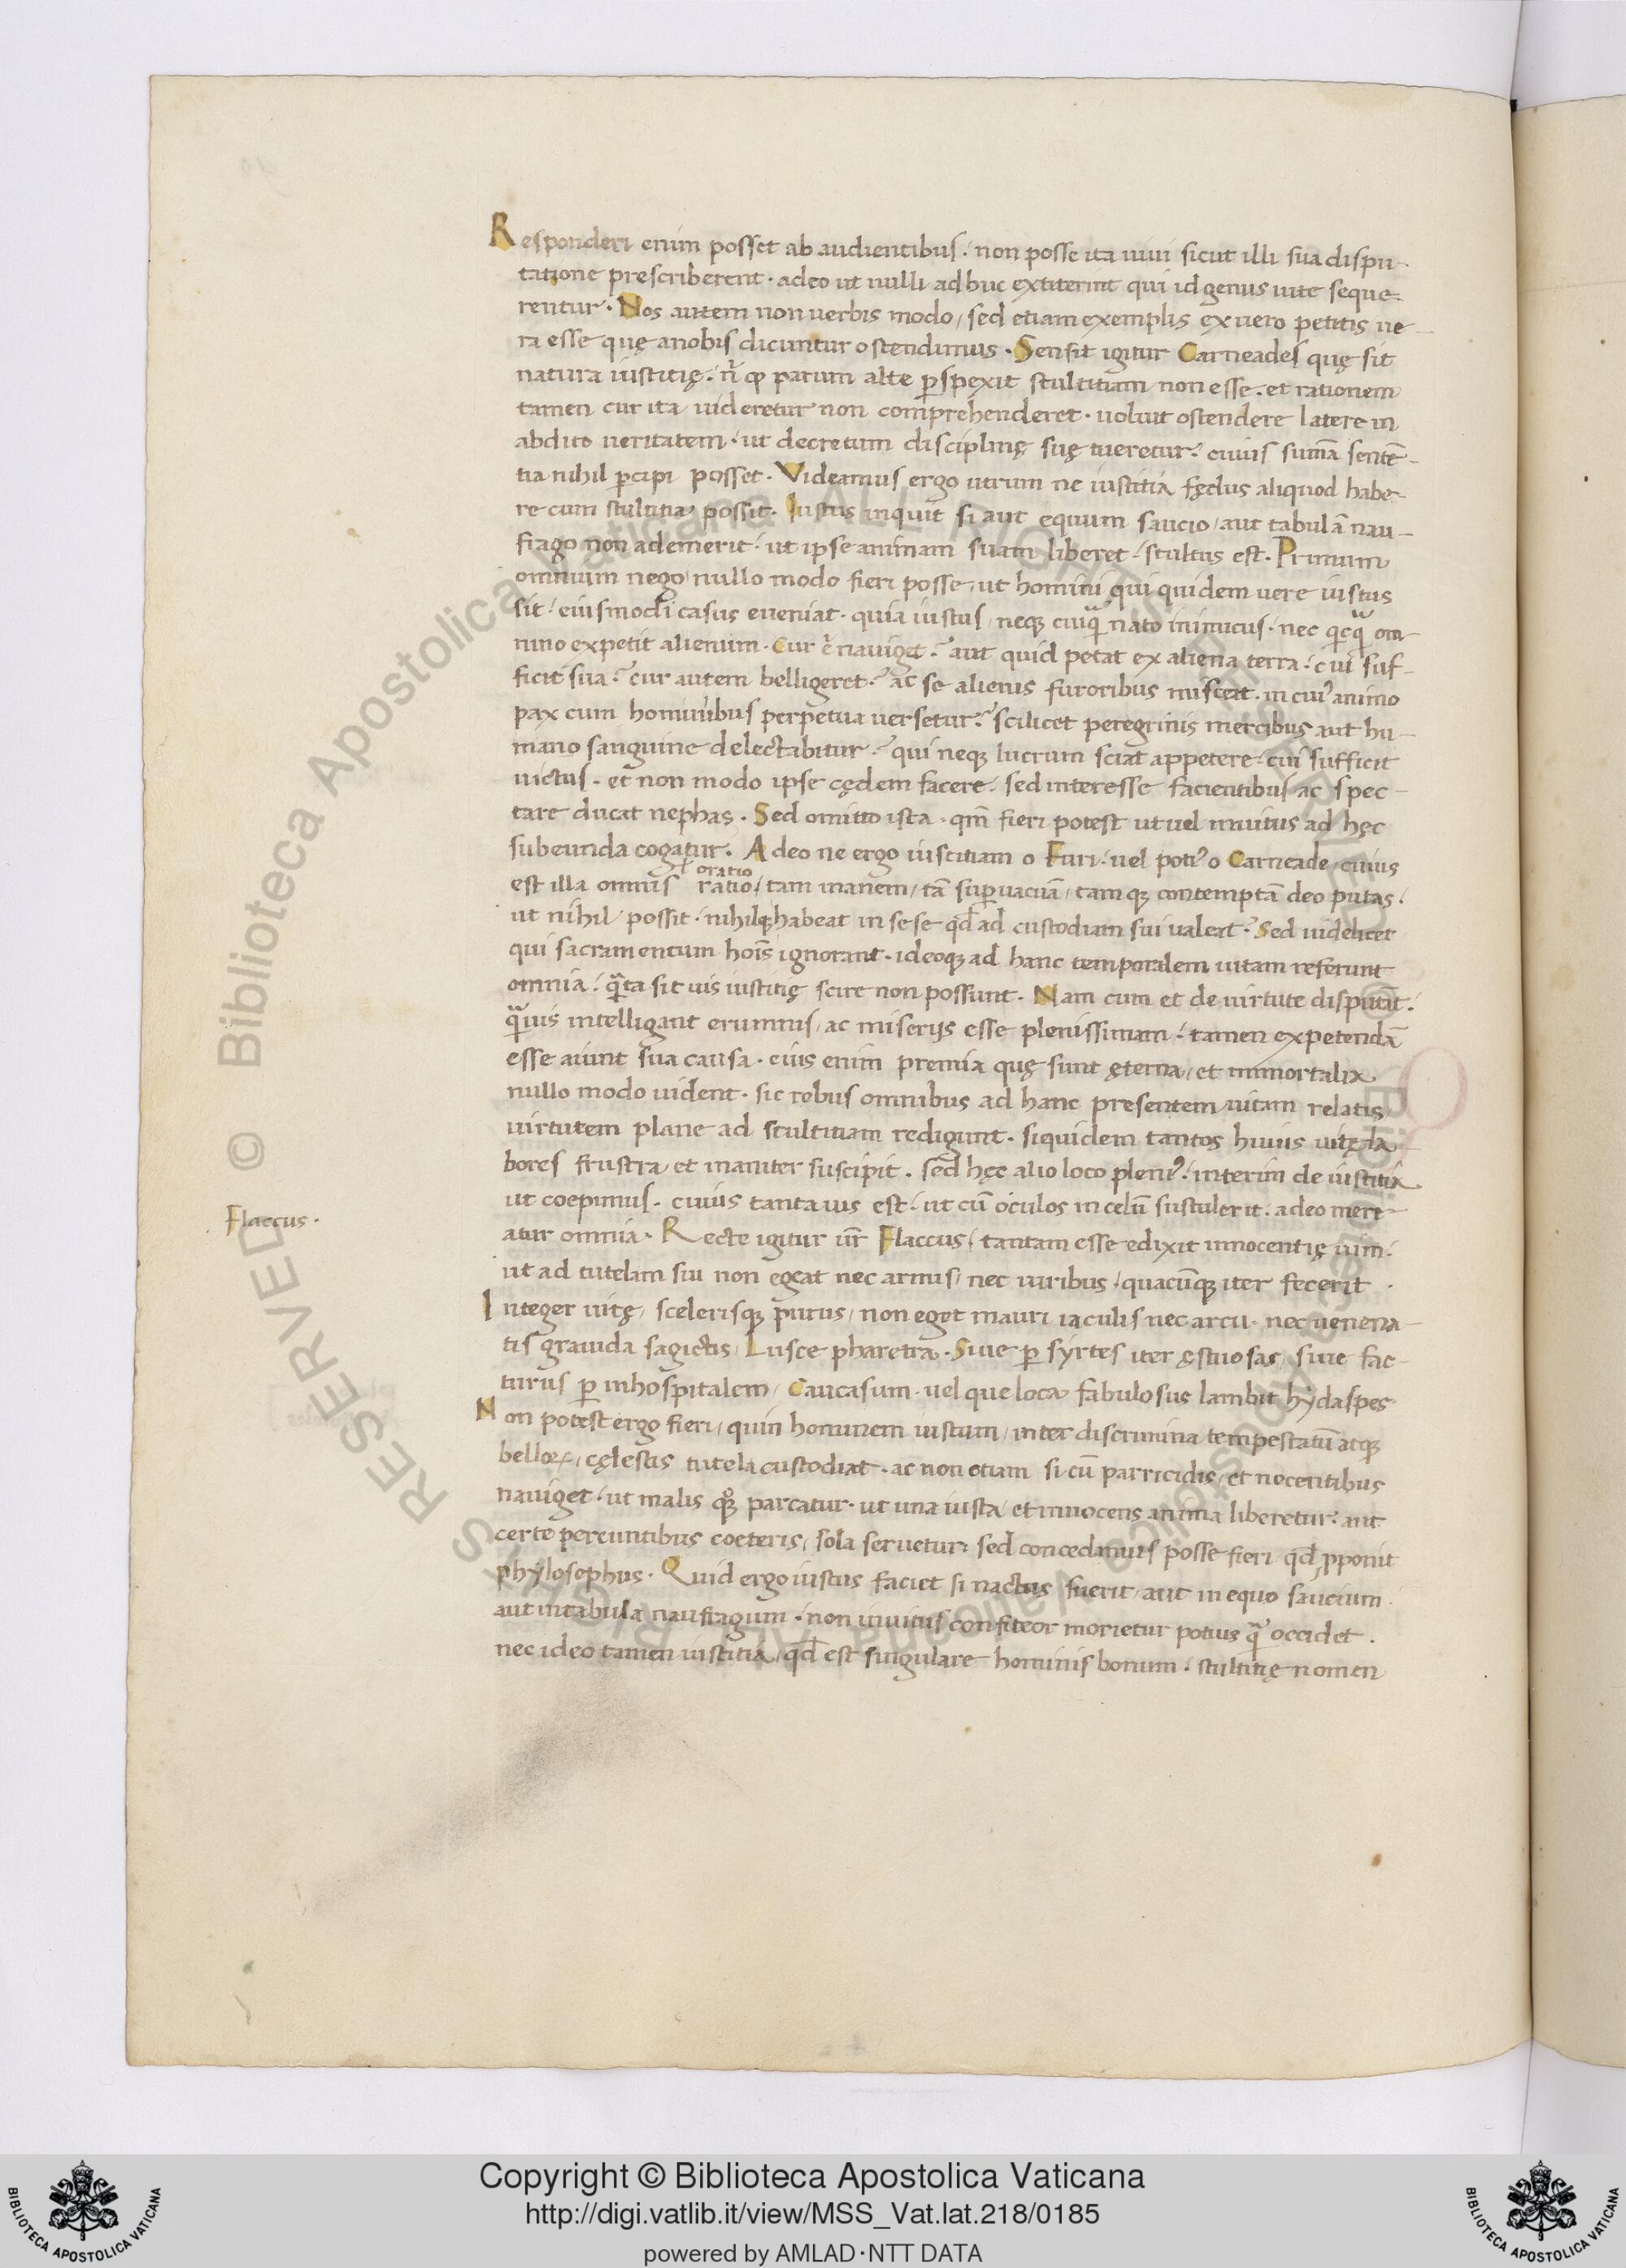 Responderi enim posset ab audientibus. non posse ita uiui sicut illi sua dispu-
tatione prescriberent. adeo ut nulli adhuc extiterint qui id genus uite seque-
rentur. Nos autem non uerbis modo, sed etiam exemplis ex uero petitis ue-
ra esse quę anobis dicuntur ostendimus. Sensit igitur Carneades quę sit
natura iustitię. parum alte ꝑspexit stultitiam non esse. et rationem
tamen cur ita uideretur non comprehenderet. uoluit ostendere latere in
abdito ueritatem. ut decretum disciplinę suę tueretur. cuius sum̄a sentē-
tia nihil ꝑcipi posset. Videamus ergo utrum ne iustitia fędus aliquod habe-
re cum stultitia possit. Iustus inquit si aut equum saucio, aut tabulā nau-
frago non ademerit. ut ipse animam suam liberet. stultus est. Primum
omnium nego nullo modo fieri posse, ut homini qui quidem uere iustus
sit. eiusmodi casus eueniat. quia iustus, neqꝫ cuiqᷓ nato inimicus. nec om-
nino expetit alienum. Cur nauiget? aut quid petat ex aliena terra. cui suf-
ficit sua? cur autem belligeret? ac se alienis furoribus misceat. in cuiꝰ animo
pax cum hominibus perpetua uersetur? scilicet peregrinis mercibus aut hu-
mano sanguine delectabitur? qui neqꝫ lucrum sciat appetere. cui sufficit
uictus. et non modo ipse cędem facere. sed interesse facientibus ac spec-
tare ducat nephas. Sed omitto ista. qm̄ fieri potest ut uel inuitus ad hęc
subeunda cogatur. Adeo ne ergo iustitiam o Furi. uel potiꝰ o Carneade, cuius
oratio
est illa omnis ratio, tam inanem, tā suꝑuacuā, tamqꝫ contemptā deo putas.
ut nihil possit. nihilqꝫ habeat in sese qd̄ ad custodiam sui ualeat. Sed uidelicet
qui sacramentum hoīs ignorant. ideoqꝫ ad hanc temporalem uitam referunt
omnia. qᷓta sit uis iustitię scire non possunt. Nam cum et de uirtute disputāt.
qᷓuis intelligant erumnis, ac miserijs esse plenissimam. tamen expetendā
esse aiunt sua causa. eius enim premia quę sunt ęterna, et immortalia
nullo modo uident. sic rebus omnibus ad hanc presentem uitam relatis
uirtutem plane ad stultitiam redigunt. siquidem tantos huius uitę la
bores frustra et inaniter suscipit. sed hęc alio loco pleniꝰ. interim de iustitia
ut coepimus. cuius tanta uis est. ut cū oculos in celū sustulerit. a deo mere-
Flaccus.
atur omnia. Recte igitur ur̄ Flaccus, tantam esse edixit innocentię uim.
ut ad tutelam sui non egeat nec armis, nec uiribus, quacūqꝫ iter fecerit.
Integer uitę, scelerisqꝫ purus, non eget mauri iaculis nec arcu. nec uenena-
tis grauida sagictis, Fusce pharetra. Siue ꝑ syrtes iter ęstuosas, siue fac-
turus ꝑ inhospitalem, Caucasum. uel que loca fabulosus lambit hydaspes
Non potest ergo fieri, quin hominem iustum, inter discrimina tempestatū atqꝫ
belloꝝ, cęlestis tutela custodiat. ac non etiam si cū parricidis, et nocentibus
nauiget. ut malis parcatur. ut una iusta et innocens anima liberetur. aut
certe pereuntibus coeteris, sola seruetur. sed concedamus posse fieri qd̄ ꝓponit
phylosophus. Quid ergo iustus faciet si nactus fuerit, aut in equo saucium.
aut in tabula naufragum. non inuitus confiteor morietur potius qᷓ occidet.
nec ideo tamen iustitia, qd̄ est singulare hominis bonum. stultitię nomen
© Biblioteca Apostolica Vaticana ALL RIGHTS RESERVED
Copyright © Biblioteca Apostolica Vaticana
http://digi.vatlib.it/view/MSS_Vat.lat.218/0185
powered by AMLAD·NTT DATA
BIBLIOTECA APOSTOLICA VATICANA
BIBLIOTECA APOSTOLICA VATICANA